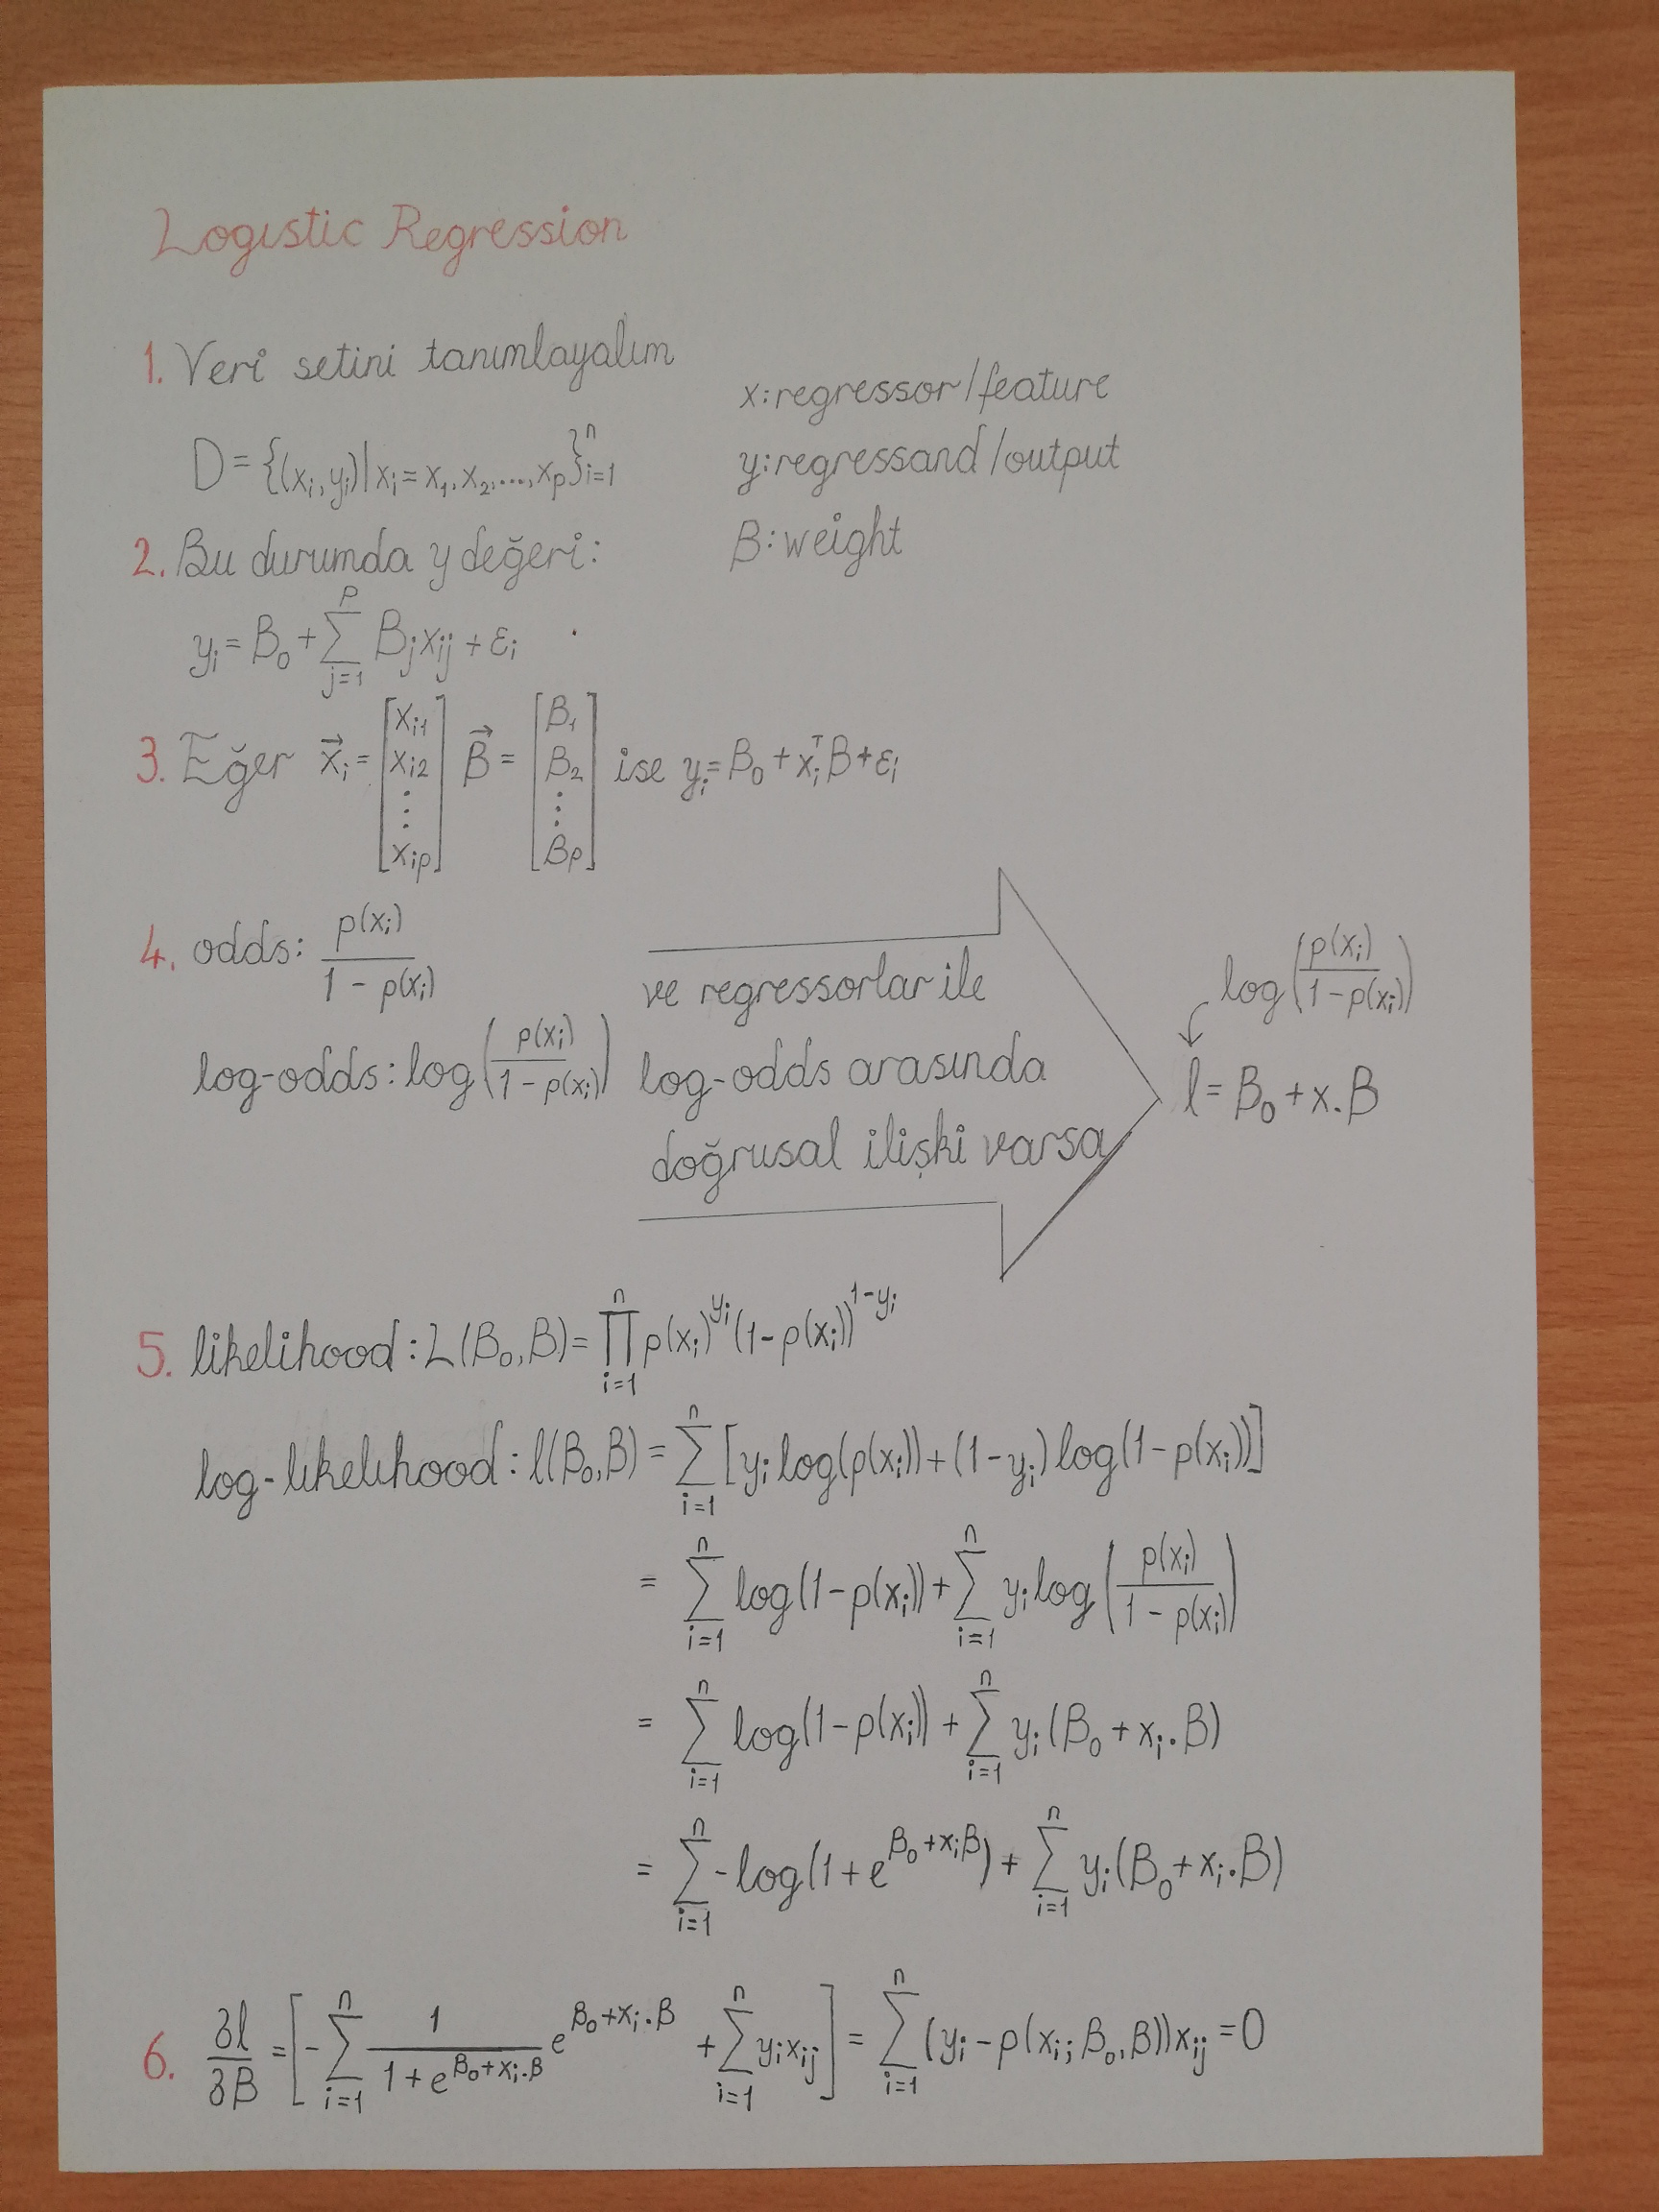 Logıstic Regression
1. Veri setini tanımlayalım
x: regressor/feature
D = {(xᵢ, yᵢ) | xᵢ = x₁, x₂, ..., xₚ}ⁿᵢ₌₁
y: regressand/output
2. Bu durumda y değeri:
B: weight
yᵢ = B₀ + ∑_{j=1}^{p} Bⱼxᵢⱼ + εᵢ
3. Eğer x⃗ᵢ = [xᵢ₁ xᵢ₂ ⋮ xᵢₚ] B⃗ = [B₁ B₂ ⋮ Bₚ] ise yᵢ = B₀ + xᵢᵀB + εᵢ
4. odds: p(xᵢ) / 1 - p(xᵢ)
log-odds: log(p(xᵢ) / 1 - p(xᵢ))
ve regressorlar ile
log-odds arasında
doğrusal ilişki varsa
log(p(xᵢ) / 1 - p(xᵢ))
l = B₀ + x.B
5. likelihood: L(B₀, B) = ∏_{i=1}^{n} p(xᵢ)^{yᵢ} (1 - p(xᵢ))^{1-yᵢ}
log-lıkelıhood: l(B₀, B) = ∑_{i=1}^{n} [yᵢ log(p(xᵢ)) + (1 - yᵢ) log(1 - p(xᵢ))]
= ∑_{i=1}^{n} log(1 - p(xᵢ)) + ∑_{i=1}^{n} yᵢ log(p(xᵢ) / 1 - p(xᵢ))
= ∑_{i=1}^{n} log(1 - p(xᵢ)) + ∑_{i=1}^{n} yᵢ (B₀ + xᵢ.B)
= ∑_{i=1}^{n} -log(1 + e^{B₀+xᵢB}) + ∑_{i=1}^{n} yᵢ(B₀ + xᵢ.B)
6. ∂l/∂B = [-∑_{i=1}^{n} 1 / 1 + e^{B₀+xᵢ.B} e^{B₀+xᵢ.B} + ∑_{i=1}^{n} yᵢxᵢⱼ] = ∑_{i=1}^{n} (yᵢ - p(xᵢ; B₀, B))xᵢⱼ = 0